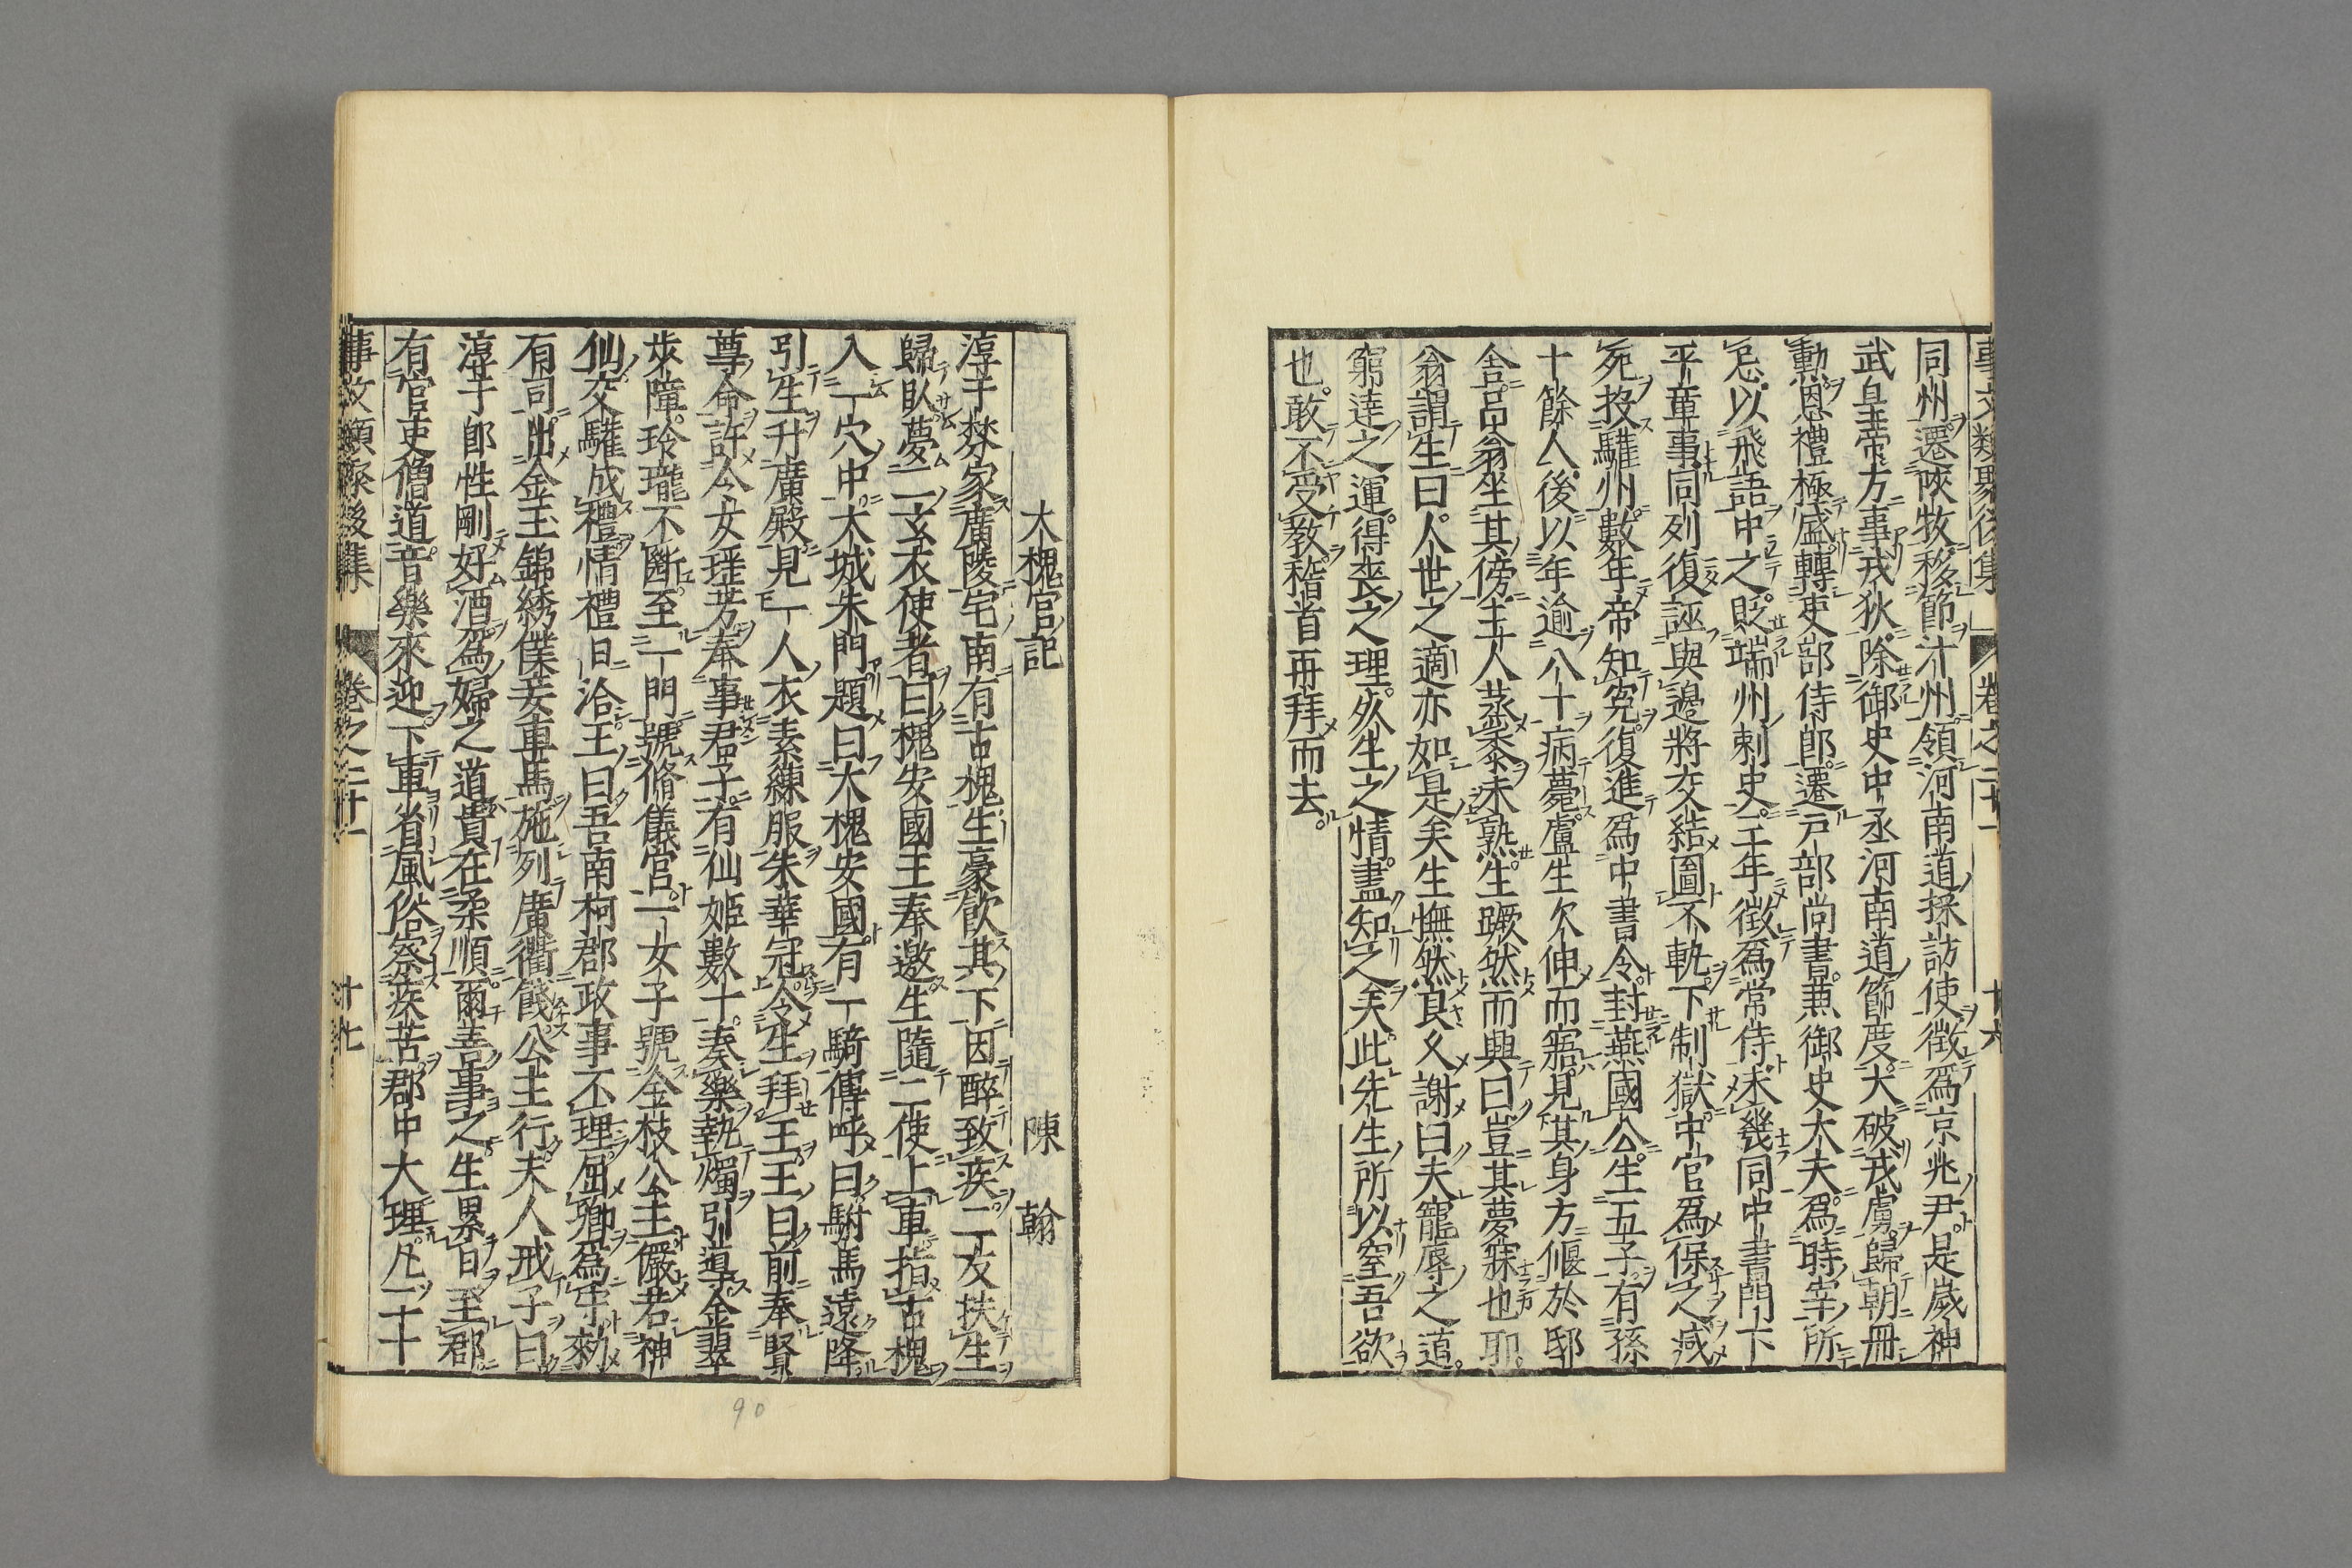 事文類聚後集 卷之二十一 十六
同州遷陝牧移節汴州領河南道採訪使徵爲京兆尹是歲神
武皇帝方事戎狄除御史中丞河南道節度大破戎虜歸朝冊
勳恩禮極盛轉吏部侍郎遷戸部尚書兼御史大夫爲時宰所
忌以飛語中之貶端州刺史三年徵爲常侍未幾同中書門下
平章事同列復誣與邊將交結圖不軌下制獄中官爲保之減
死投驩州數年帝知寃復進爲中書令封燕國公生五子有孫
十餘人後以年逾八十病薨盧生欠伸而寤見其身方偃於邸
舎呂翁坐其傍主人蒸黍未熟生蹶然而興曰豈其夢寐也耶
翁謂生曰人世之適亦如是矣生憮然良久謝曰夫寵辱之道
窮達之運得喪之理死生之情盡知之矣此先生所以窒吾欲
也敢不受教稽首再拜而去
大槐宮記 陳翰
淳于棼家廣陵宅南有古槐生豪飲其下因醉致疾二友扶生
歸臥夢二玄衣使者曰槐安國王奉邀生隨二使上車指古槐
入一穴中大城朱門題曰大槐安國有一騎傳呼曰駙馬遠降
引生升廣殿見一人衣素練服朱華冠令生拜王王曰前奉賢
尊命許令女瑤芳奉事君子有仙姫數十奏樂執燭引導金翠
歩障玲瓏不斷至一門號脩儀宮一女子號金枝公主儼若神
仙交驩成禮情禮日洽王曰吾南柯郡政事不理屈卿爲守勑
有司出金玉錦綉僕妾車馬施列廣衢餞公主行夫人戒子曰
淳于郎性剛好酒爲婦之道貴在柔順爾善事之生累日至郡
有官吏僧道音樂來迎下車省風俗察疾苦郡中大理凡二十
事文類聚後集 卷之二十一 十七
90